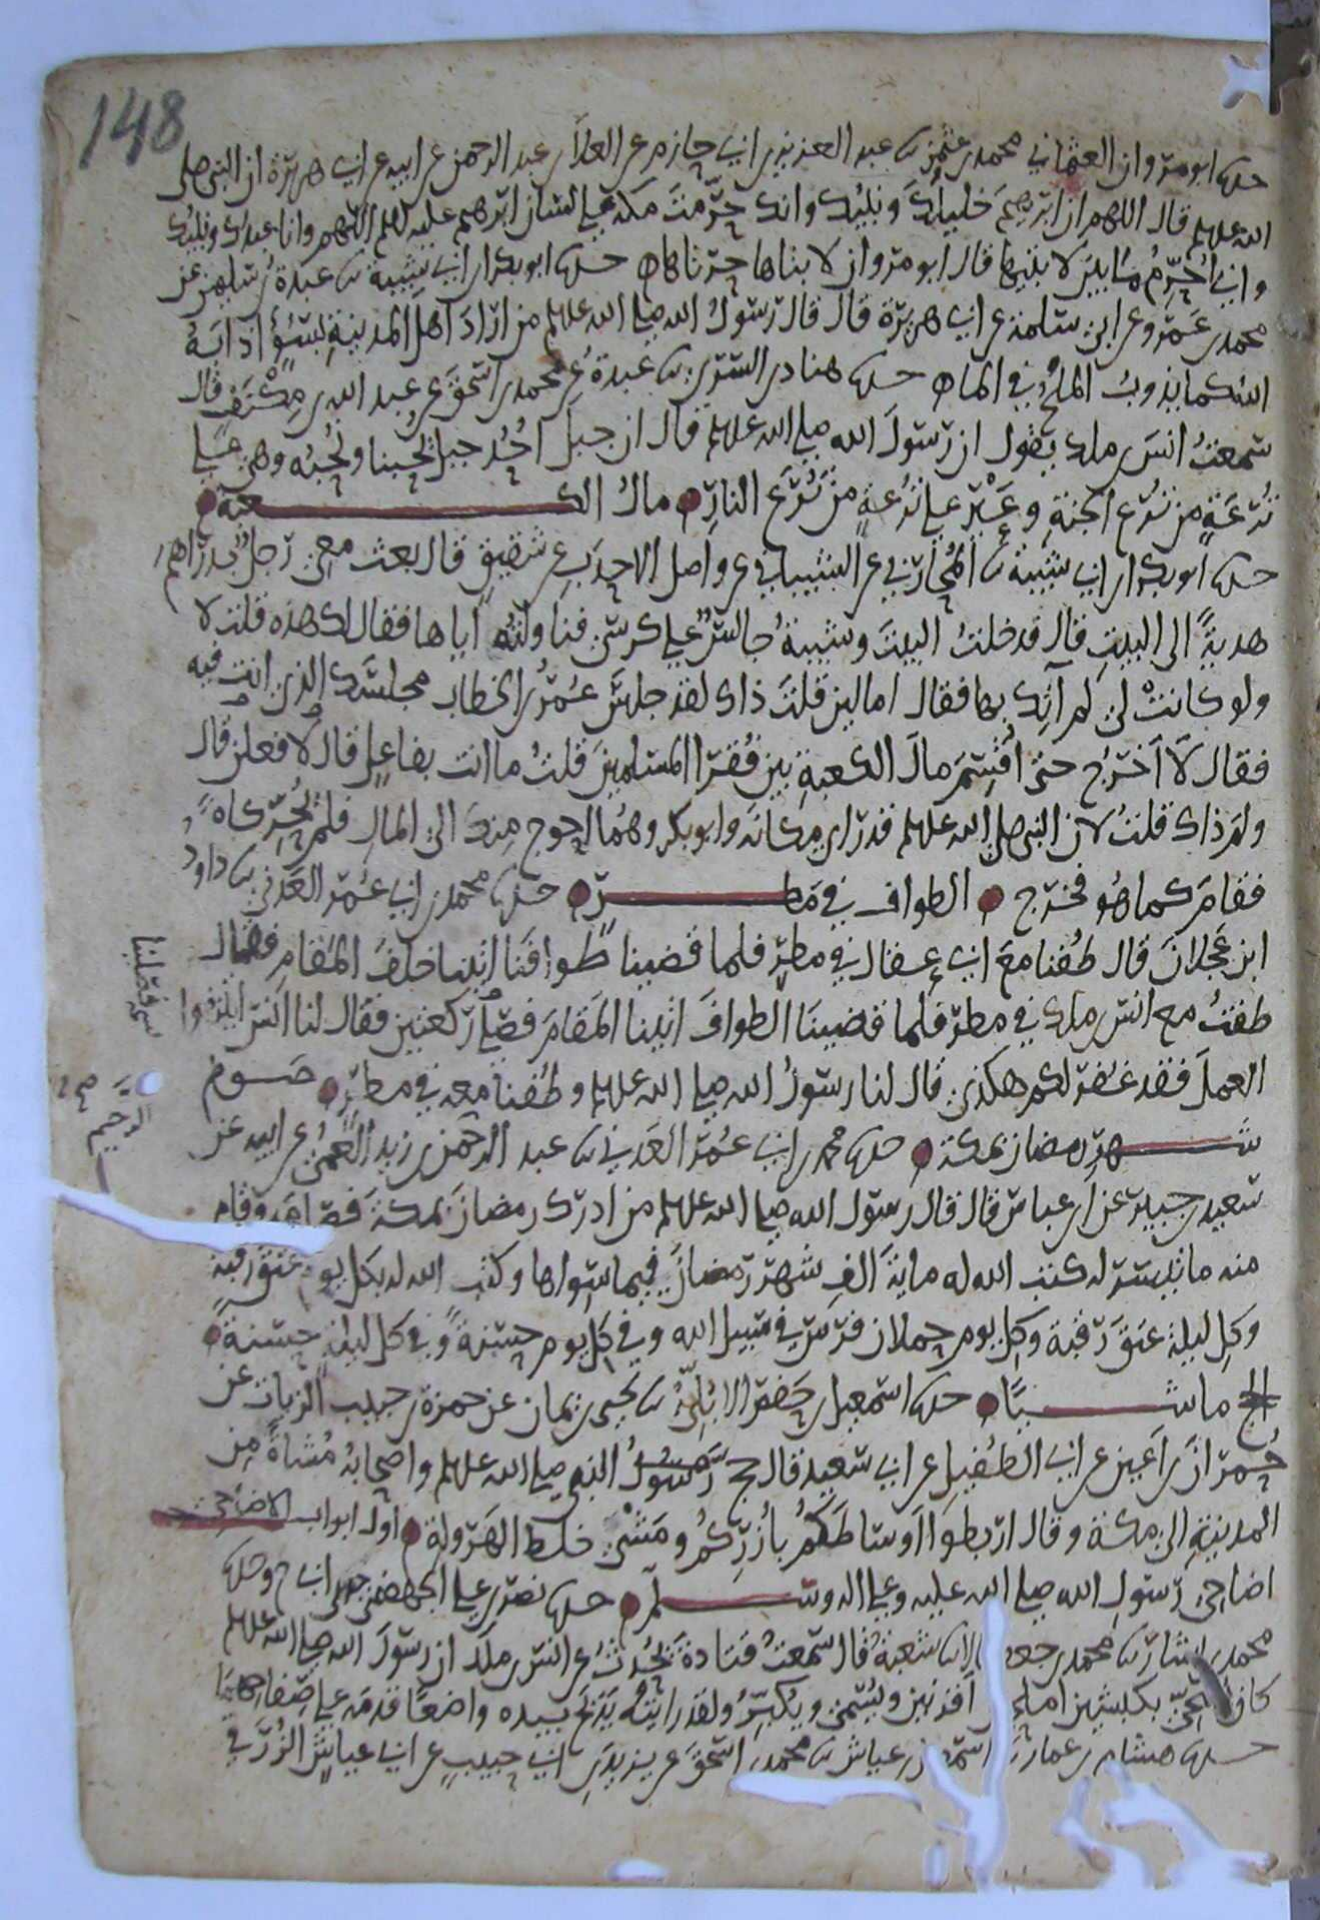 148
حدثنا ابو مروان العثماني محمد بن عثمن ثنا عبد العزيز بن ابي حازم عن العلاء بن عبد الرحمن عن ابيه عن ابي هريرة ان النبي صلى
الله عليه وسلم قال اللهم ان ابرهيم خليلك ونبيك وانك حرمت مكة على لسان ابرهيم عليه السلم اللهم وانا عبدك ونبيك
واني احرم ما بين لابتيها قال ابو مروان لابتاها حرتاها ه حدثنا ابو بكر بن ابي شيبة ثنا عبدة بن سليمن عن
محمد بن عمرو عن ابي سلمة عن ابي هريرة قال قال رسول الله صلى الله عليه وسلم من اراد اهل المدينة بسوء اذابه
الله كما يذوب الملح في الماء ه حدثنا هناد بن السري ثنا عبدة عن محمد بن اسحق عن عبد الله بن مكنف قال
سمعت انس بن ملك يقول ان رسول الله صلى الله عليه وسلم قال ان جبل احد جبل يحبنا ونحبه وهي على
ترعة من ترع الجنة وعير على ترعة من ترع النار ه مال الكعبة ه
حدثنا ابو بكر بن ابي شيبة ثنا المحاربي عن الشيباني عن واصل الاحدب عن شقيق قال بعث معي رجل بدراهم
هدية الى البيت قال فدخلت البيت وشيبة جالس على كرسي فناولته اياها فقال لك هذه قلت لا
ولو كانت لي لم آتك بها فقال اما لين قلت ذاك لقد جلس عمر بن الخطاب مجلسك الذي انت فيه
فقال لا اخرج حتى اقسم مال الكعبة بين فقرا المسلمين قلت ما انت بفاعل قال لافعلن قال
ولم ذاك قلت لان النبي صلى الله عليه وسلم قد راى مكانه وابو بكر وهما احوج منك الى المال فلم يحركاه
فقام كما هو فخرج ه الطواف في مطر ه حدثنا محمد بن ابي عمر العدني ثنا داود
ابن عجلان قال طفنا مع ابي عقال في مطر فلما قضينا طوافنا اتينا خلف المقام فقال
طفت مع انس بن ملك في مطر فلما قضينا الطواف اتينا المقام فصلينا ركعتين فقال لنا انس ايتنفوا
العمل فقد غفر لكم هكذى قال لنا رسول الله صلى الله عليه وسلم وطفنا معه في مطر ه صوم
شهر رمضان بمكة ه حدثنا محمد بن ابي عمر العدني ثنا عبد الرحمن بن زيد العمي عن ابيه عن
سعيد بن جبير عن ابن عباس قال قال رسول الله صلى الله عليه وسلم من ادرك رمضان بمكة فصامه وقام
منه ما تيسر له كتب الله له ماية الف شهر رمضان فيما سواها وكتب الله له بكل يوم عتق رقبة
وكل ليلة عتق رقبة وكل يوم حملان فرس في سبيل الله وفي كل يوم حسنة وفي كل ليلة حسنة ه
الحج ماشيا ه حدثنا اسمعيل بن حفص الابلي ثنا يحيى بن يمان عن حمزة بن حبيب الزيات عن
حمران بن اعين عن ابي الطفيل عن ابي سعيد قال حج النبي صلى الله عليه وسلم واصحابه مشاة من
المدينة الى مكة وقال اربطوا اوساطكم بأزركم ومشى خلط الهرولة ه اول ابواب الاضاحي
اضاحي رسول الله صلى الله عليه وعلى اله وسلم ه حدثنا نصر بن علي الجهضمي حدثني ابي ح وحدثنا
محمد بن بشار ثنا محمد بن جعفر قالا ثنا شعبة قال سمعت قتادة يحدث عن انس بن ملك ان رسول الله صلى الله عليه وسلم
كان يضحي بكبشين املحين اقرنين ويسمي ويكبر ولقد رايته يذبح بيده واضعا قدمه على صفاحهما
حدثنا هشام بن عمار ثنا اسمعيل بن عياش ثنا محمد بن اسحق عن يزيد بن ابي حبيب عن ابي عياش الزرقي